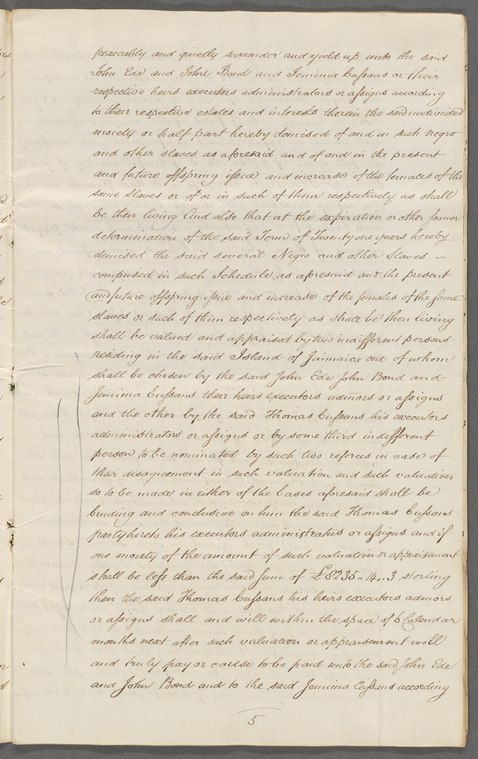 peaceably and quietly surrender and yield up unto the said
John Ede and John Bond and Jemima Cussans or their
respective heirs executors administrators or assigns according
to their respective estates and interests therein the said undivided
moiety or half part hereby demised of and in such negro
and other slaves as aforesaid and of and in the present
and future offspring issue and increase of the females of the
same slaves or of or in such of them respectively as shall
be then living And also that at the expiration or other sooner
determination of the said Term of Twenty one years hereby
demised the said several Negro and other Slaves
comprised in such Schedule as aforesaid and the present
and future offspring issue and increase of the females of the same
slaves or such of them respectively as shall be then living
shall be valued and appraised by two indifferent persons
residing in the said Island of Jamaica one of whom
shall be chosen by the said John Ede John Bond and
Jemima Cussans their heirs executors admors or assigns
and the other by the said Thomas Cussans his executors
administrators or assigns or by some third indifferent
person to be nominated by such two referees in case of
their disagreement in such valuation and such valuation
so to be made in either of the Cases aforesaid shall be
binding and conclusive on him the said Thomas Cussans
party hereto his executors administrators or assigns and if
one moiety of the amount of such valuation or appraisement
shall be less than the said sum of £8235 „ 14 „ 3 sterling
then the said Thomas Cussans his heirs executors admors
or assigns shall and will within the space of 6 Calendar
months next after such valuation or appraisement well
and truly pay or cause to be paid unto the said John Ede
and John Bond and to the said Jemima Cussans according
5